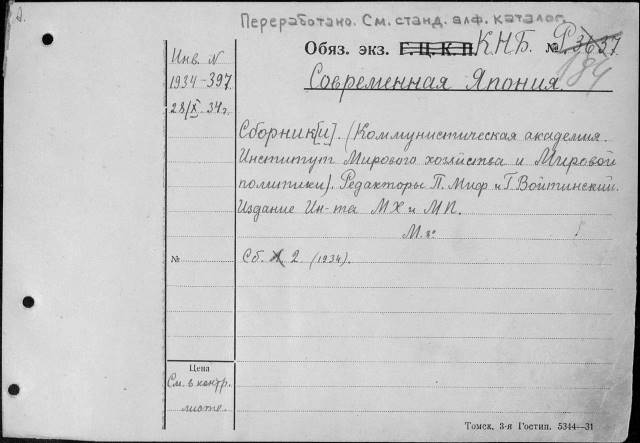 Переработано. См. станд. алф. каталог.
Обяз. экз. Г.Ц.К.П. КНБ. № Р 3637
184
Инв. N
1934-397
28/X 34 г.
Современная Япония
Сборник[и]. (Коммунистическая академия.
Институт Мирового хозяйства и Мировой
политики). Редакторы П. Миф и Г. Войтинский.
Издание Ин-та МХ и МП.
М. г.
№ Сб. 1. 2 (1934).
Цена
См. в контр.
листе.
Томск, 3-я Гостип. 5344—31